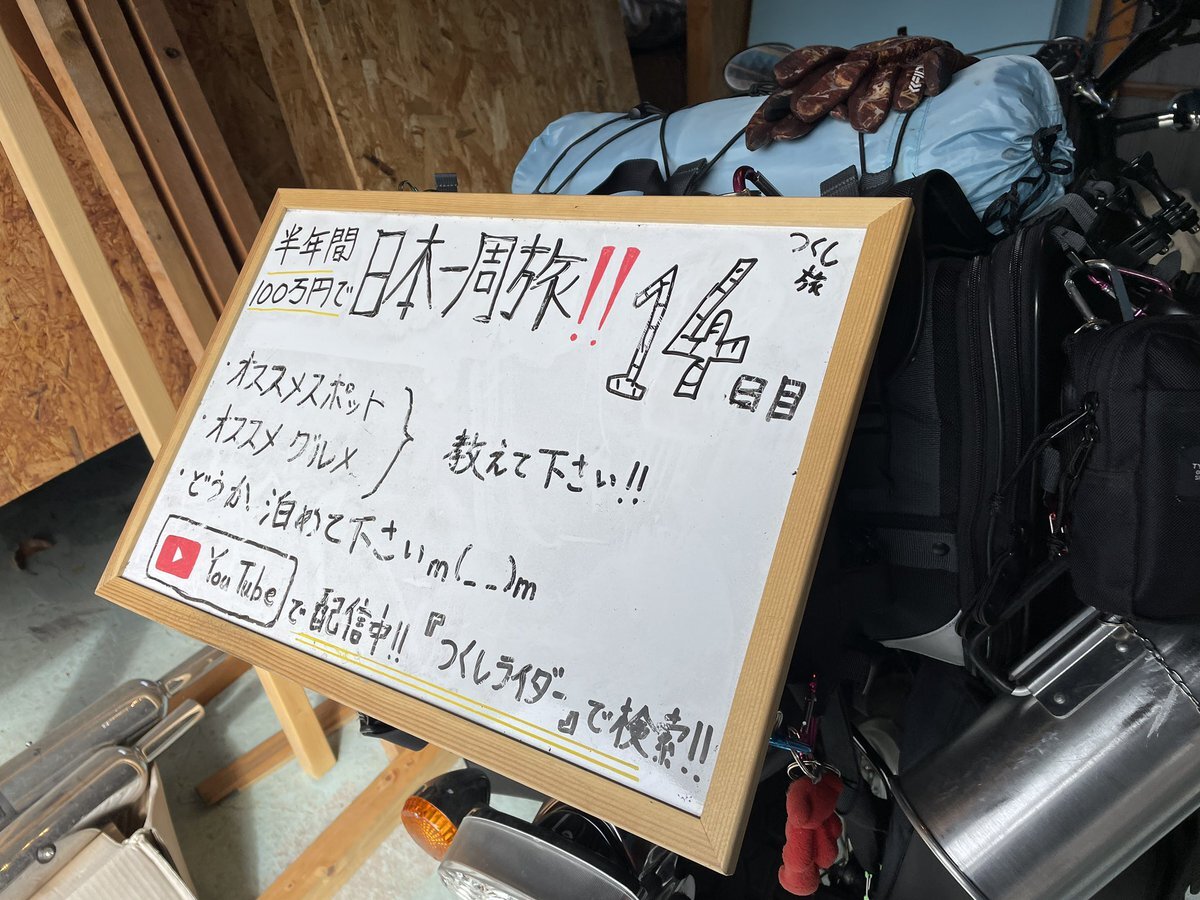 半年間
100万円で
日本一周旅!!
14日目
つくし旅
・オススメスポット
・オススメグルメ
教えて下さい!!
・どうか泊めて下さいm(_ _)m
YouTubeで配信中!!『つくしライダー』で検索!!